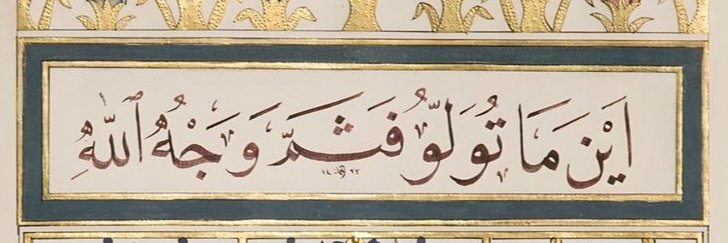 اَيْنَ مَا تُوَلّوُ فَثَمَّ وَجْهُ ٱللّٰهِ